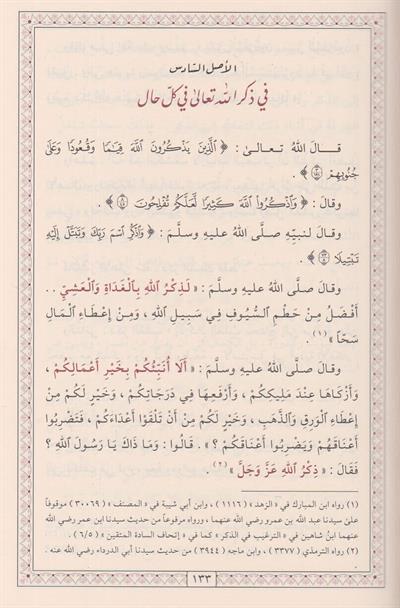 الأصل السادس
في ذكر الله تعالى في كل حال
قـال اللهُ تـعـالى : ﴿ ٱلَّذِينَ يَذْكُرُونَ ٱللَّهَ قِيَٰمًا وَقُعُودًا وَعَلَىٰ
جُنُوبِهِمْ ﴾ .
وقال : ﴿ وَٱذْكُرُوا۟ ٱللَّهَ كَثِيرًا لَّعَلَّكُمْ تُفْلِحُونَ ﴾ .
وقال لنبيِّهِ صلَّى اللهُ عليهِ وسلَّمَ : ﴿ وَٱذْكُرِ ٱسْمَ رَبِّكَ وَتَبَتَّلْ إِلَيْهِ
تَبْتِيلًا ﴾ .
وقال صلَّى اللهُ عليهِ وسلَّمَ : « لَذِكْرُ اللهِ بِالْغَدَاةِ وَالْعَشِيِّ . .
أَفْضَلُ مِنْ حَطْمِ السُّيُوفِ فِي سَبِيلِ اللهِ ، وَمِنْ إِعْطَاءِ الْمَالِ
سَحّاً »(١) .
وقال صلَّى الله عليهِ وسلَّمَ : « أَلَا أُنَبِّئُكُمْ بِخَيْرِ أَعْمَالِكُمْ ،
وَأَزْكَاهَا عِنْدَ مَلِيكِكُمْ ، وَأَرْفَعِهَا فِي دَرَجَاتِكُمْ ، وَخَيْرٍ لَكُمْ مِنْ
إِعْطَاءِ الْوَرِقِ وَالذَّهَبِ ، وَخَيْرٍ لَكُمْ مِنْ أَنْ تَلْقَوْا أَعْدَاءَكُمْ ، فَتَضْرِبُوا
أَعْنَاقَهُمْ وَيَضْرِبُوا أَعْنَاقَكُمْ ؟ » . قالُوا : وَمَا ذَاكَ يَا رَسُولَ اللهِ ؟
فَقَالَ : « ذِكْرُ اللهِ عَزَّ وَجَلَّ »(٢) .
(١) رواه ابن المبارك في « الزهد » ( ١١١٦ ) ، وابن أبي شيبة في « المصنف » ( ٣٠٠٦٩ ) موقوفاً
علىٰ سيدنا عبد الله بن عمرو رضي الله عنهما ، ورواه مرفوعاً من حديث سيدنا ابن عمر رضي الله
عنهما ابنُ شاهين في « الترغيب في الذكر » كما في « إتحاف السادة المتقين » ( ٦/٥ ) .
(٢) رواه الترمذي ( ٣٣٧٧ ) ، وابن ماجه ( ٣٩٤٤ ) من حديث سيدنا أبي الدرداء رضي الله عنه .
١٣٣